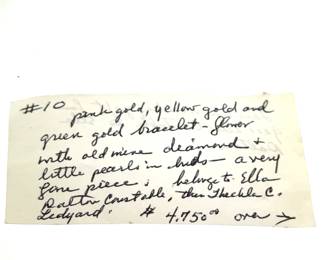 #10
pink gold, yellow gold and
green gold bracelet - flower
with old mine diamond +
little pearls in buds - a very
fine piece; belongs to Ella
Dalton Constable, then Theckla C.
Ledyard. $4,750.00 over >